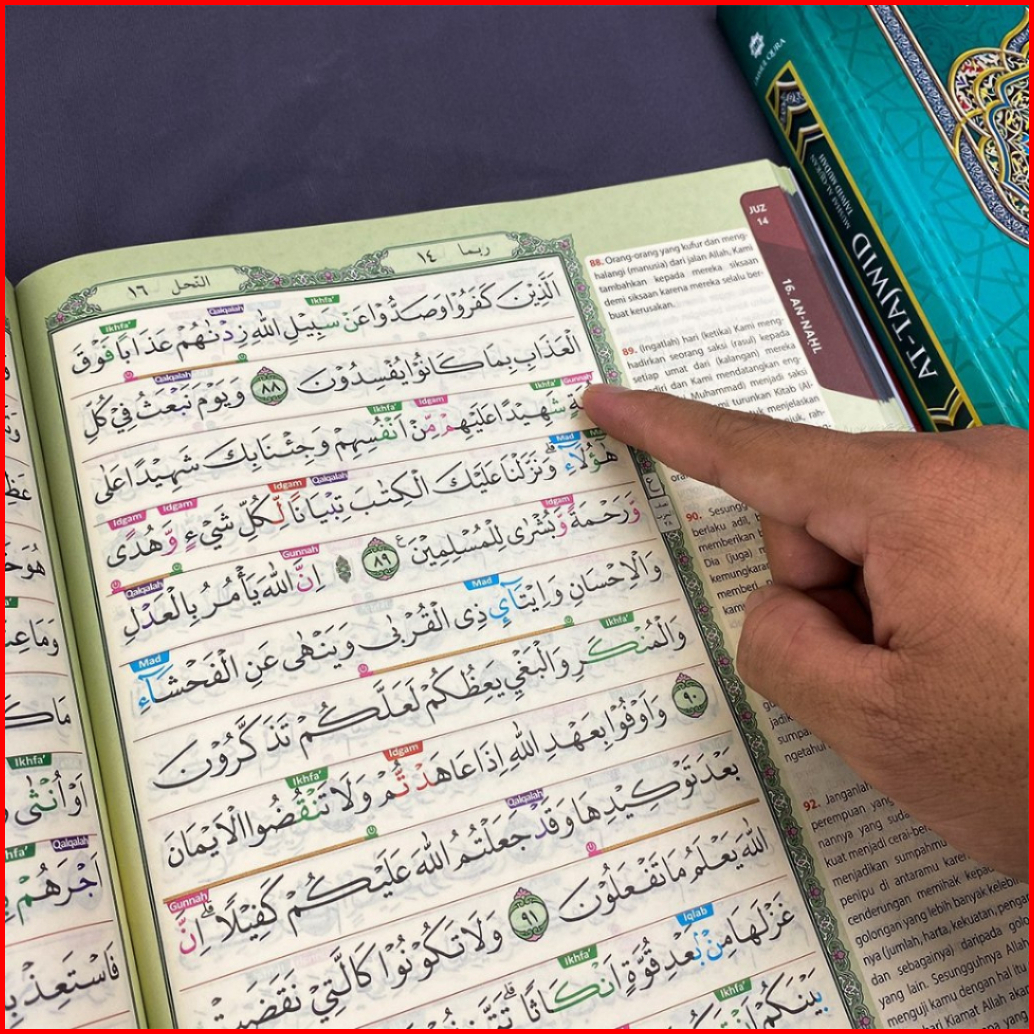 AT-TAJWID
MUSHAF AL-QUR'AN
TAJWID MUDAH
JUZ
14
16. AN-NAHL
ربما ١٤
النحل ١٦
Ikhfa' Qalqalah Ikhfa'
الَّذِيْنَ كَفَرُوْا وَصَدُّوْا عَنْ سَبِيْلِ اللّٰهِ زِدْنٰهُمْ عَذَابًا فَوْقَ
Qalqalah
الْعَذَابِ بِمَا كَانُوْا يُفْسِدُوْنَ ٨٨ وَيَوْمَ نَبْعَثُ فِيْ كُلِّ
Gunnah Ikhfa' Idgam Ikhfa'
شَهِيْدًا عَلَيْهِمْ مِّنْ اَنْفُسِهِمْ وَجِئْنَا بِكَ شَهِيْدًا عَلٰى
Mad Qalqalah Idgam
هٰٓؤُلَاۤءِۗ وَنَزَّلْنَا عَلَيْكَ الْكِتٰبَ تِبْيَانًا لِّكُلِّ شَيْءٍ وَّهُدًى
Idgam Idgam
Idgam Gunnah
وَّرَحْمَةً وَّبُشْرٰى لِلْمُسْلِمِيْنَ ٨٩ اِنَّ اللّٰهَ يَأْمُرُ بِالْعَدْلِ
Qalqalah
Mad
وَالْاِحْسَانِ وَاِيْتَاۤئِ ذِى الْقُرْبٰى وَيَنْهٰى عَنِ الْفَحْشَاۤءِ
Mad
Ikhfa'
وَالْمُنْكَرِ وَالْبَغْيِ يَعِظُكُمْ لَعَلَّكُمْ تَذَكَّرُوْنَ
Idgam Ikhfa'
٩٠ وَاَوْفُوْا بِعَهْدِ اللّٰهِ اِذَا عَاهَدْتُّمْ وَلَا تَنْقُضُوا الْاَيْمَانَ
Qalqalah
بَعْدَ تَوْكِيْدِهَا وَقَدْ جَعَلْتُمُ اللّٰهَ عَلَيْكُمْ كَفِيْلًاۗ اِنَّ
Gunnah
اللّٰهَ يَعْلَمُ مَا تَفْعَلُوْنَ ٩١ وَلَا تَكُوْنُوْا كَالَّتِيْ نَقَضَتْ
Iqlab Ikhfa'
غَزْلَهَا مِنْۢ بَعْدِ قُوَّةٍ اَنْكَاثًاۗ
Ikhfa'
بَيْنَكُمْ
88. Orang-orang yang kufur dan meng-
halangi (manusia) dari jalan Allah, Kami
tambahkan kepada mereka siksaan
demi siksaan karena mereka selalu ber-
buat kerusakan.
89. (Ingatlah) hari (ketika) Kami meng-
hadirkan seorang saksi (rasul) kepada
setiap umat dari (kalangan) mereka
diri dan Kami mendatangkan eng-
Muhammad) menjadi saksi
turunkan Kitab (Al-
menjelaskan
rah-
90. Sesungg
berlaku adil,
memberikan b
Dia (juga) m
kemungkaran
memberi
kamu
sumpa
ngetahui
92. Janganlah
perempuan yang
nannya yang suda
kuat menjadi cerai-be
menjadikan sumpahmu
penipu di antaramu kare
cenderungan memihak kepad
golongan yang lebih banyak kelebih
nya (jumlah, harta, kekuatan, pengar
dan sebagainya) daripada golo
yang lain. Sesungguhnya Allah
menguji kamu dengan hal itu
Kiamat Allah akan
Ikhfa'
اَوْ اُنْثٰى
Qalqalah
اَجْرَهُمْ
فَاسْتَعِذْ